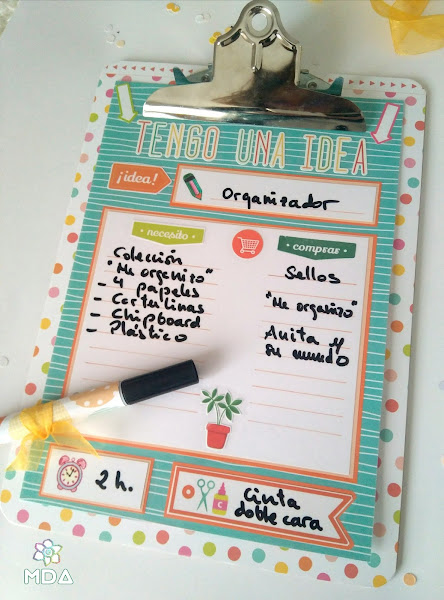 TENGO UNA IDEA
¡idea!
Organizador
• necesito •
Colección
"Me organizo"
- 4 papeles
- Cartulinas
- Chipboard
- Plástico
• comprar •
Sellos
"Me organizo"
Anita y
su mundo
2 h.
Cinta
doble cara
MDA